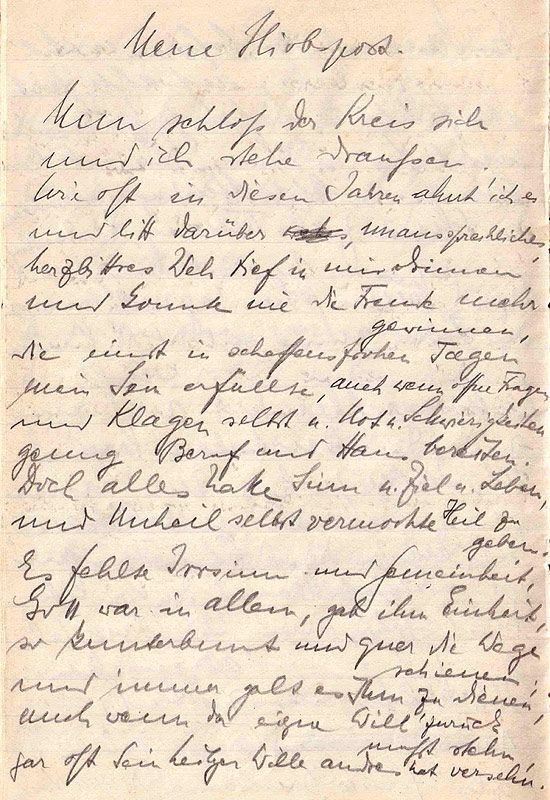 Neue Hiobspost.
Nun schloß der Kreis sich
und ich stehe draußen.
Wie oft in diesen Jahren ahnt' ich es
und litt darüber unaussprechliches,
herzbittres Weh tief in mir drinnen
und konnte nie die Freude mehr
gewinnen,
die einst in schaffensfrohen Tagen
mein Sein erfüllte, auch wenn offne Fragen
und Klagen selbst u. Not u. Schwierigkeiten
genug Beruf und Haus bereiten.
Doch alles hatte Sinn u. Ziel u. Leben,
und Unheil selbst vermochte Heil zu
geben.
Es fehlte Irrsinn und Gemeinheit,
Gott war in allem, gab ihm Einheit,
so kunterbunt und quer die Wege
schienen,
und immer galt es Ihm zu dienen,
auch wenn der eigne Will' zurück
mußt stehn
gar oft Sein heilger Wille andres hat versehn.